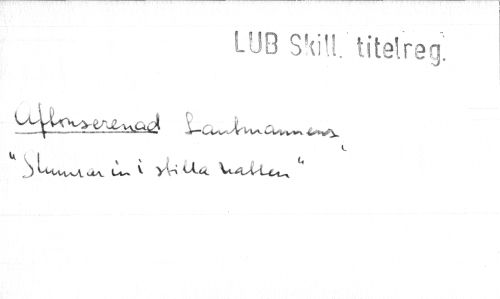 LUB Skill. titelreg.
Aftonserenad Lantmannens
"Slumrar in i stilla natten"